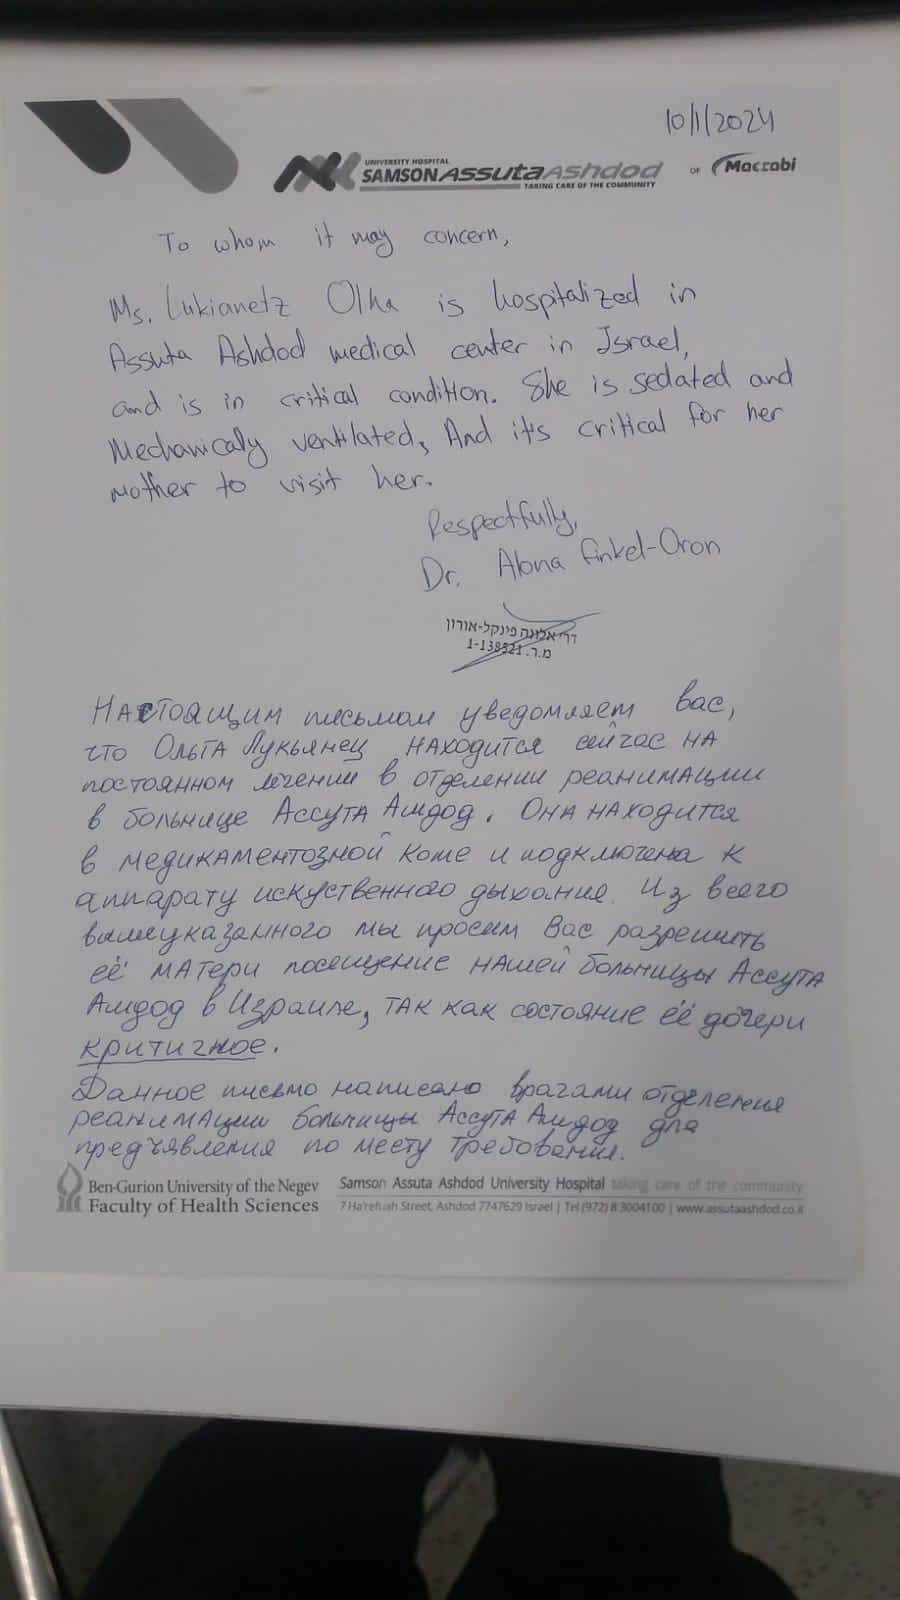 10/1/2024
UNIVERSITY HOSPITAL
SAMSON Assuta Ashdod OF Maccabi
TAKING CARE OF THE COMMUNITY
To whom it may concern,
Ms. Lukianetz Olha is hospitalized in
Assuta Ashdod medical center in Israel,
and is in critical condition. She is sedated and
Mechanically ventilated, And it's critical for her
mother to visit her.
Respectfully,
Dr. Alona Finkel-Oron
דר' אלונה פינקל-אורון
מ.ר. 1-138521
Настоящим письмом уведомляет вас,
что Ольга Лукьянец находится сейчас на
постоянном лечении в отделении реанимации
в больнице Ассута Ашдод. Она находится
в медикаментозной коме и подключена к
аппарату искуственного дыхания. Из всего
вышеуказанного мы просим Вас разрешить
её матери посещение нашей больницы Ассута
Ашдод в Израиле, так как состояние её дочери
критичное.
Данное письмо написано врачами отделения
реанимации больницы Ассута Ашдод для
предъявления по месту требования.
Ben-Gurion University of the Negev
Faculty of Health Sciences
Samson Assuta Ashdod University Hospital taking care of the community
7 Ha'refuah Street, Ashdod 7747629 Israel | Tel (972) 8 3004100 | www.assutaashdod.co.il